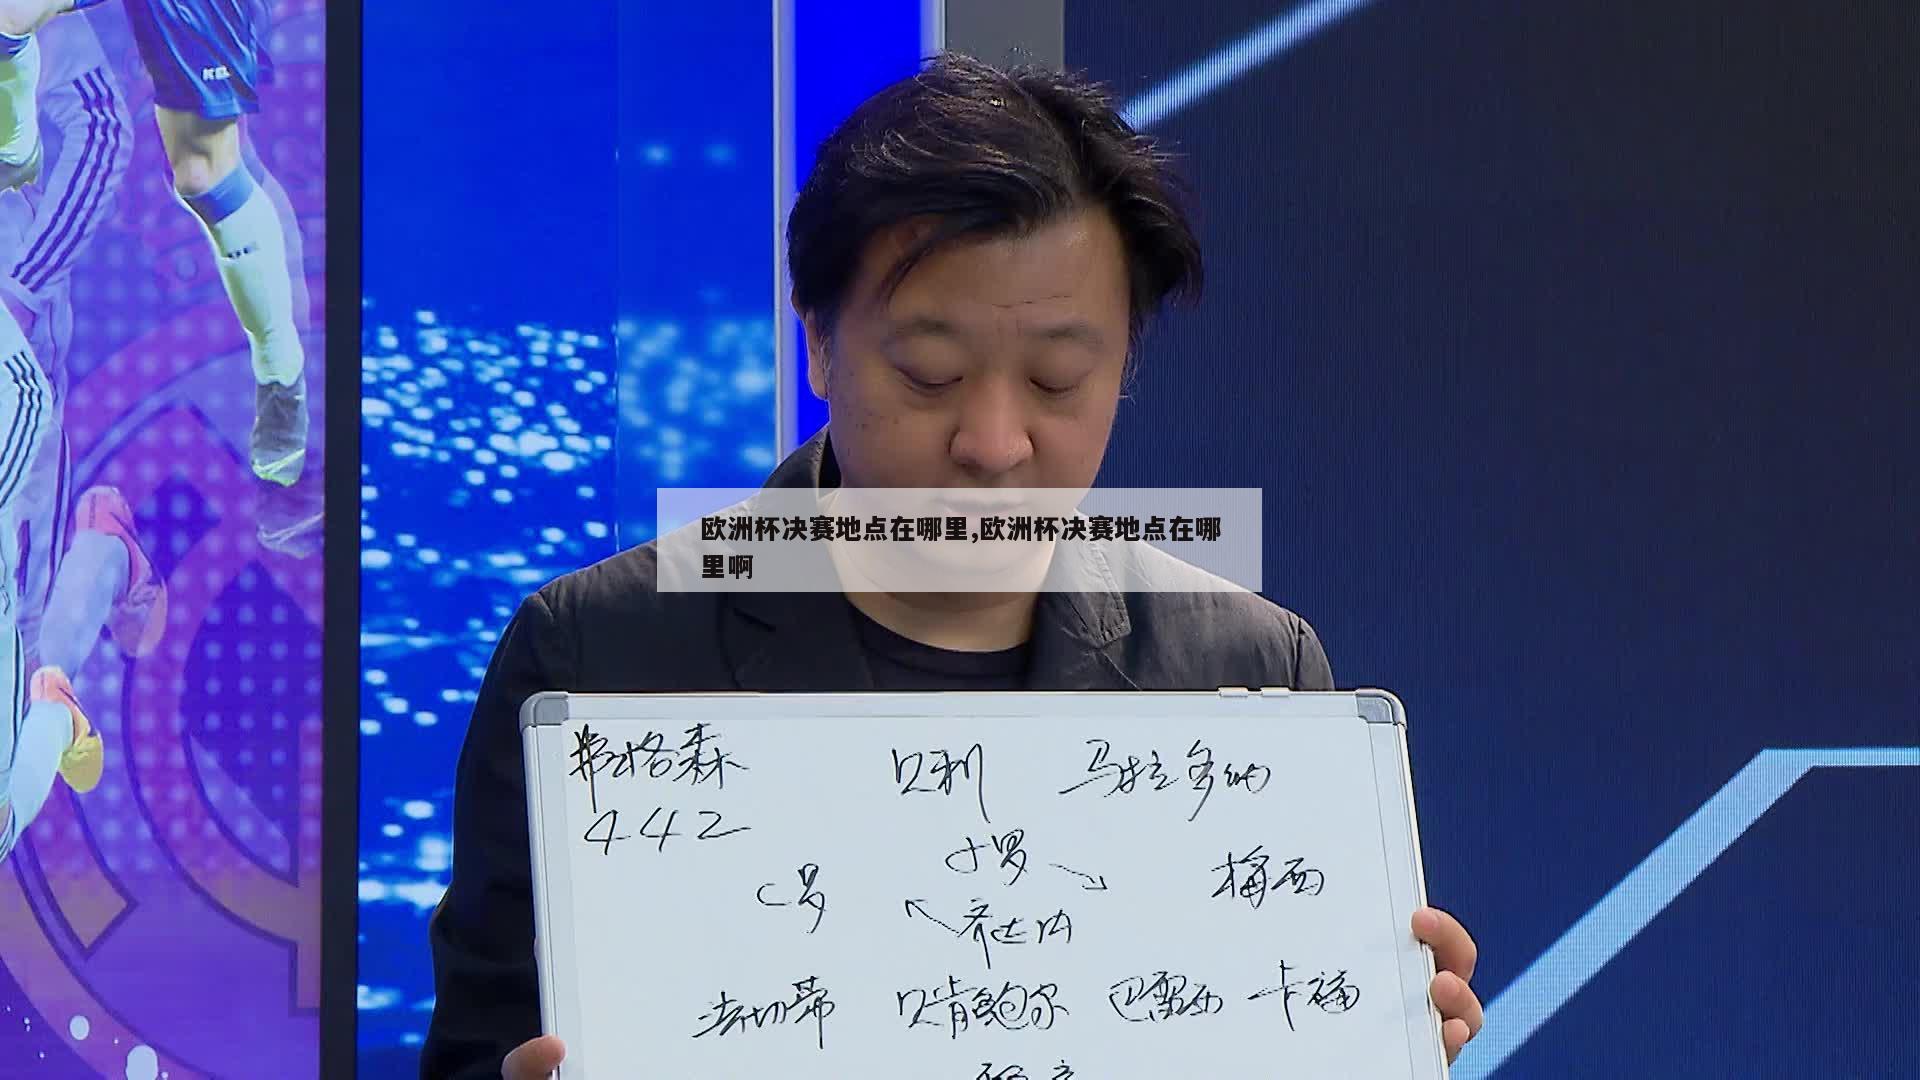 欧洲杯决赛地点在哪里,欧洲杯决赛地点在哪
里啊
弗格森 贝利 马拉多纳
442
小罗
C罗 梅西
齐达内
法切蒂 贝肯鲍尔 巴雷西 卡福